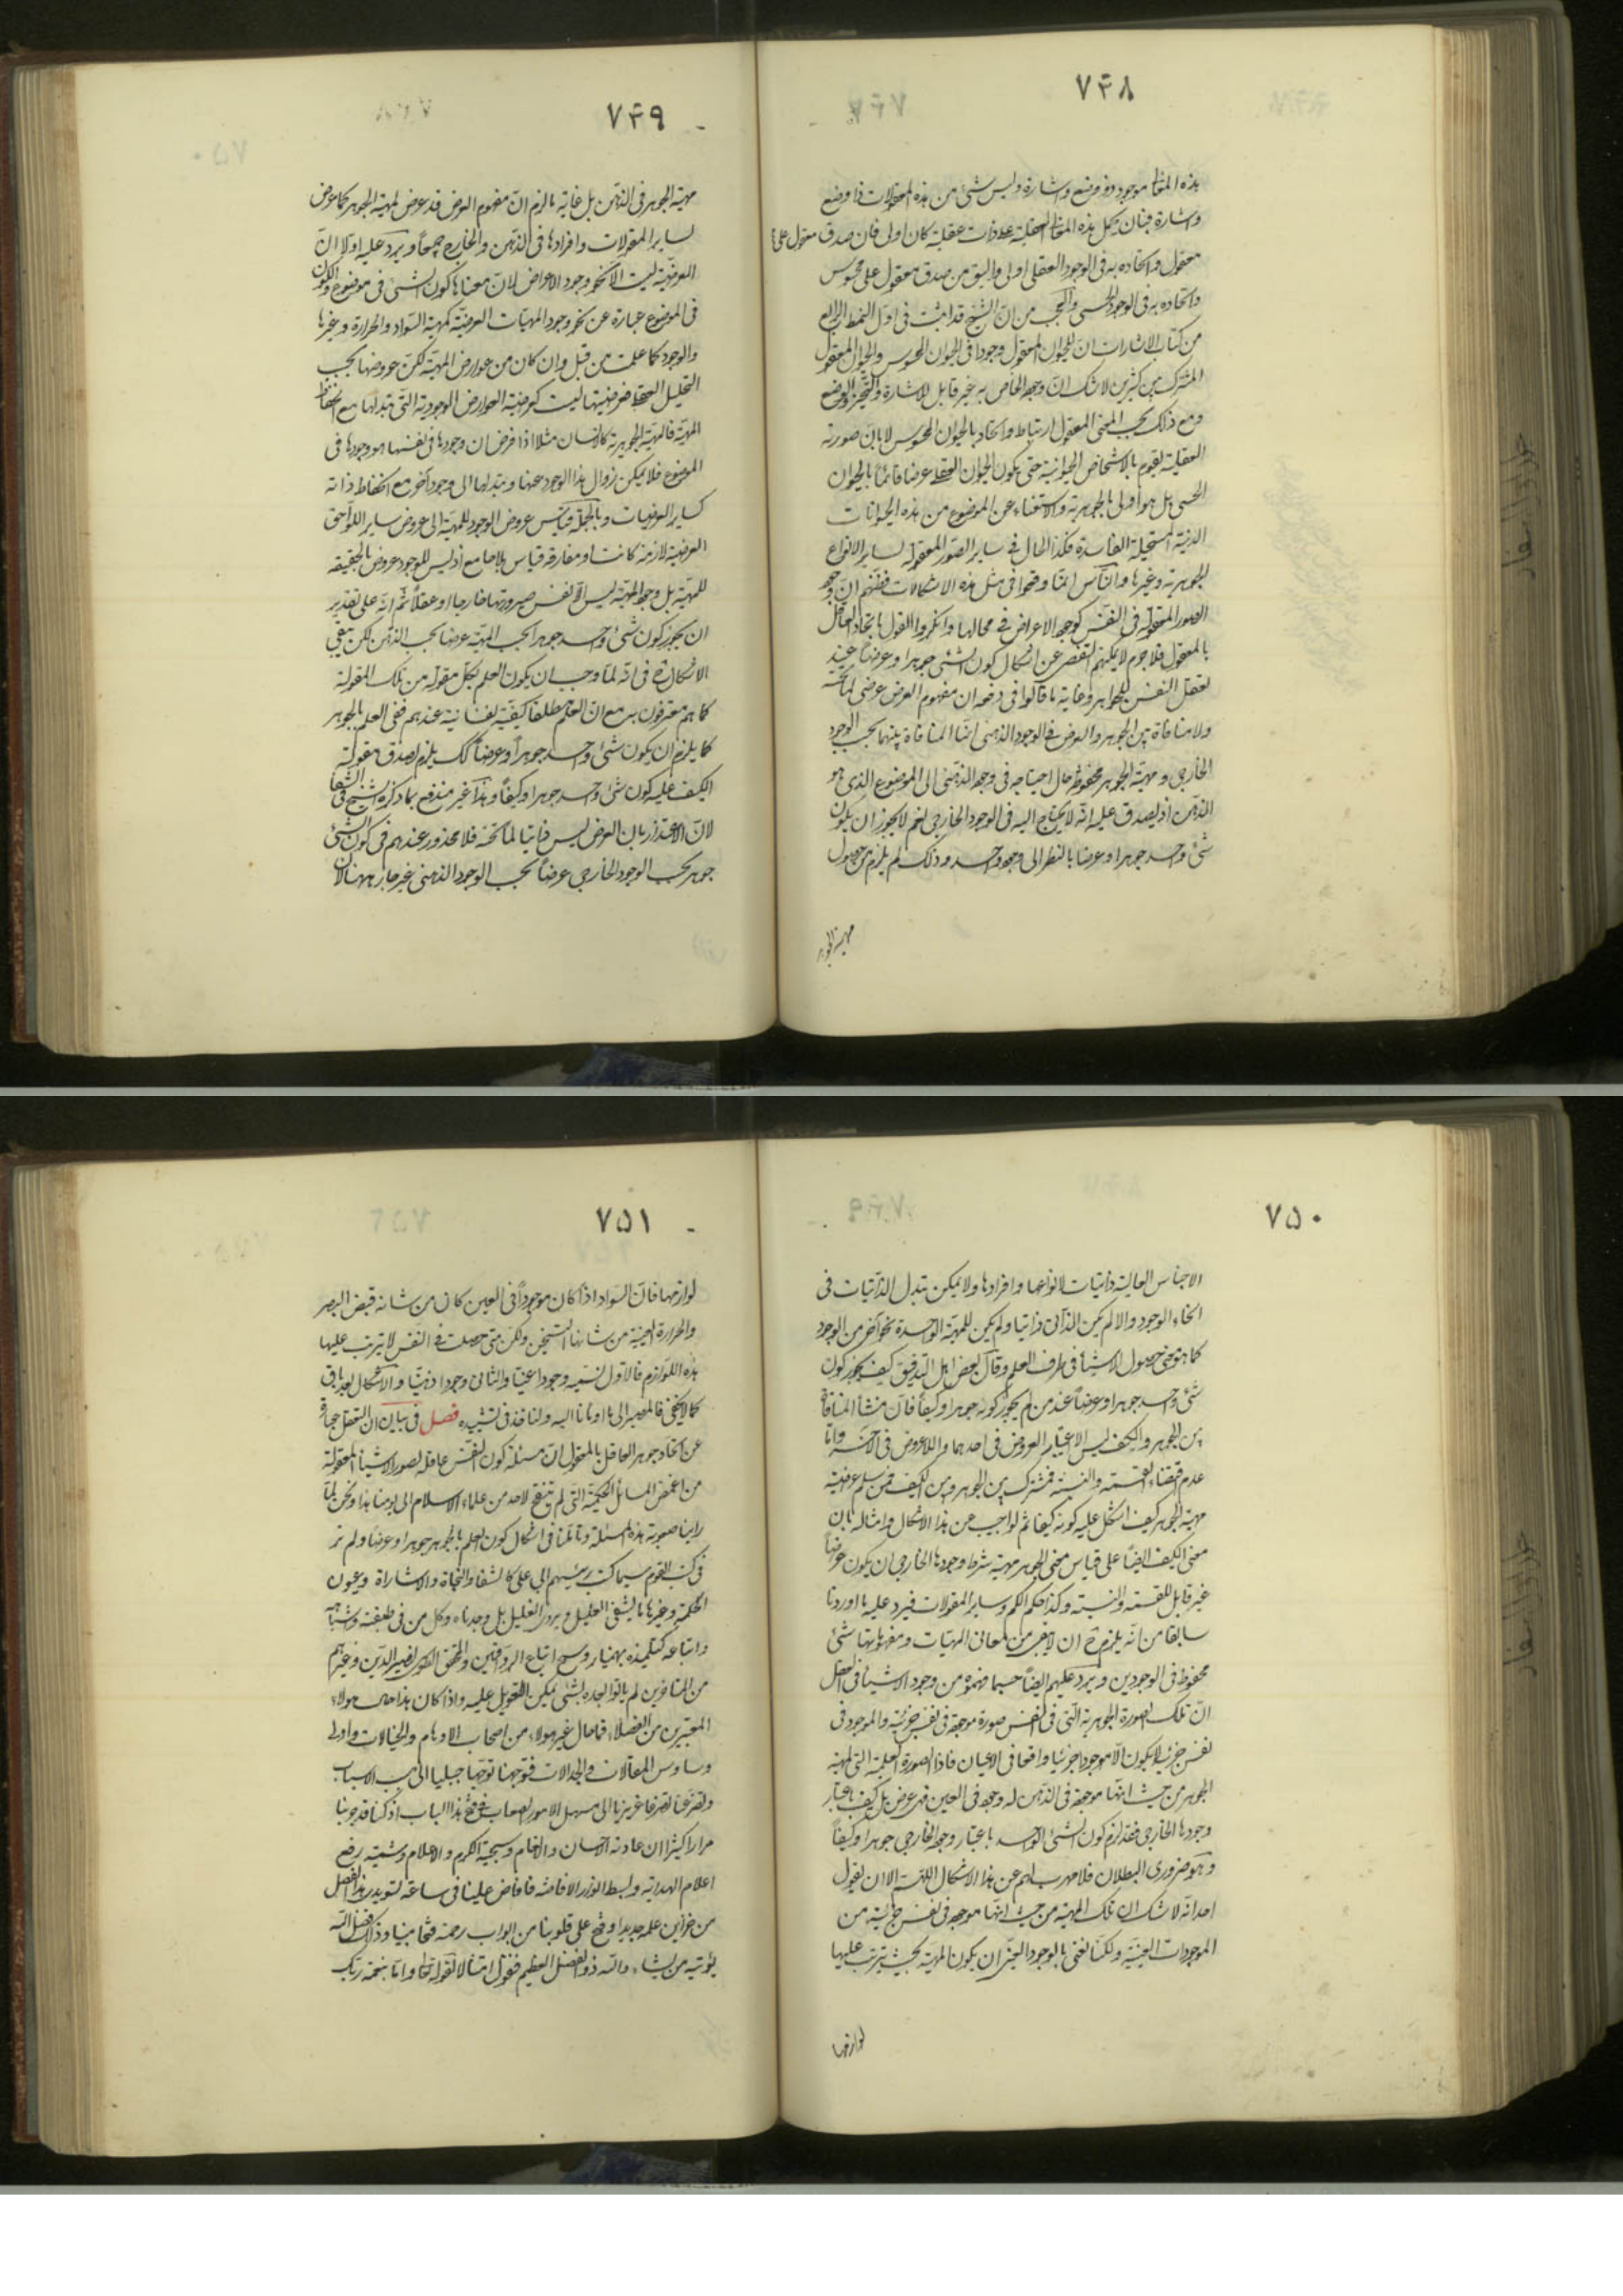 ٧٤٨
هذه المعقولات موجود ذو وضع واشارة وليس شئ من هذه المعقولات ذا وضع
واشارة فبان يحمل هذه المعقولات العقلية على ذات عقلية كان اولى فان صدق معقول على
معقول واتحاده به فى الوجود العقلى اولى واليق من صدق معقول على محسوس
واتحاده به فى الوجود الحسى والعجب من ان الشيخ قد اثبت فى اول النمط الرابع
من كتاب الاشارات ان للحيوان المعقول وجودا فى الحيوان المحسوس والحيوان المعقول
المشترك بين كثيرين لا شك ان وجوده الخاص به غير قابل للاشارة والتحيز والوضع
ومع ذلك بحسب المعنى المعقول ارتباط واتحاد بالحيوان المحسوس لا بان صورته
العقلية يقوم بالاشخاص الحيوانية حتى يكون الحيوان العقلى عرضا قائما بالحيوان
الحسى بل هو اولى بالجوهرية والاستغناء عن الموضوع من هذه الحيوانات
الدنية المستحيلة الفاسدة فكذا الحال فى ساير الصور المعقولة لساير الانواع
الجوهرية وغيرها والناس انما وقعوا فى مثل هذه الاشكالات فظنهم ان وجود
الصور المعقولة فى النفس كوجود الاعراض فى محالها وانكروا القول باتحاد العاقل
بالمعقول فلا جرم لا يمكنهم التفصى عن اشكال كون الشئ جوهرا وعرضا عند
تعقل النفس للجواهر وغاية ما قالوا فى دفعه ان مفهوم العرض عرضى لما تحته
ولا منافاة بين الجوهر والعرض فى الوجود الذهنى انما المنافاة بينهما بحسب الوجود
الخارجى ومهية الجوهر محفوظة حال احتياجه فى وجوده الذهنى الى الموضوع الذى هو
الذهن اذ يصدق عليه انه لا يحتاج اليه فى الوجود الخارجى نعم لا يجوز ان يكون
شئ واحد جوهرا وعرضا بالنظر الى وجود واحد وذلك لم يلزم من حصول
مهية الجوهر
٧٤٩
مهية الجوهر فى الذهن بل غاية ما لزم ان مفهوم العرض قد عرض لمهية الجوهر كما عرض
لساير المقولات وافرادها فى الذهن والخارج جميعا ويرد عليه اولا ان
العرضية ليست الا نحو وجود الاعراض لان معناها كون الشئ فى موضوع والكون
فى الموضوع عبارة عن نحو وجود المهيات العرضية كمهية السواد والحرارة وغيرها
والوجود كما علمت من قبل وان كان من عوارض المهية لكن عروضها بحسب
التحليل العقلى فعرضيتها ليست كعرضية العوارض الوجودية التى تبدلها مع انحفاظ
المهية فالمهية الجوهرية كالانسان مثلا اذا فرض ان وجودها فى نفسها هو وجودها فى
الموضوع فلا يمكن زوال هذا الوجود عنها وتبدلها الى وجود آخر مع انحفاظ ذاته
كساير العرضيات وبالجملة قياس عروض الوجود للمهية الى عروض ساير اللواحق
العرضية لازمة كانت او مفارقة قياس بلا جامع اذ ليس للوجود عروض بالحقيقة
للمهية بل وجود المهية ليس الا نفس صيرورتها خارجا او عقلا ثم انه على تقدير
ان يجوز كون شئ واحد جوهرا بحسب المهية عرضا بحسب الذهن لكن يبقى
الاشكال ح فى انه لما وجب ان يكون العلم بكل مقولة من تلك المقولة
كما هم معترفون به مع ان العلم مطلقا كيفية نفسانية عندهم ففى العلم بالجوهر
كما يلزم ان يكون شئ واحد جوهرا وعرضا كك يلزم لصدق مقولة
الكيف عليه كون شئ واحد جوهرا وكيفا وهذا غير مندفع بما ذكره الشيخ فى الشفا
لان الاعتذار بان العرض ليس ذاتيا لما تحته فلا محذور عندهم فى كون الشئ
جوهر بحسب الوجود الخارجى عرضا بحسب الوجود الذهنى غير جار ههنا لان
٧٥٠
الاجناس العالية ذاتيات لانواعها وافرادها ولا يمكن تبدل الذاتيات فى
انحاء الوجود والا لم يكن الذاتى ذاتيا ولم يكن للمهية الواحدة نحو آخر من الوجود
كما هو معنى حصول الاشياء فى ظرف العلم وقال بعض اهل التدقيق كيف يجوز كون
شئ واحد جوهرا وعرضا عند من لم يجوز كونه جوهرا وكيفا فان منشأ المنافاة
بين الجوهر والكيف ليس الا عتبار العروض فى احدهما واللاعروض فى الآخر واما
عدم اقتضاء القسمة والنسبة فمشترك بين الجوهر وبين الكيف فمن سلم عرضية
مهية الجوهر كيف اشكل عليه كونه كيفا ثم لو اجيب عن هذا الاشكال وامثاله بان
معنى الكيف ايضا على قياس معنى الجوهر مهية شرط وجودها الخارجى ان يكون عرضا
غير قابل للقسمة والنسبة وكذا حكم الكم وساير المقولات فيرد عليه ما اوردنا
سابقا من انه يلزم ح ان لا يبقى من معانى المهيات ومفهوماتها شئ
محفوظ فى الوجودين ويرد عليهم ايضا حسبما فهموه من وجود الاشياء فى العقل
ان تلك الصورة الجوهرية التى فى النفس صورة موجودة فى نفس جزئية والموجود فى
نفس جزئية لا يكون الا موجودا جزئيا واقعا فى الاعيان فاذا الصورة العلمية التى لمهية
الجوهر من حيث انها موجودة فى الذهن له وجود فى العين فهو عرض بل كيف باعتبار
وجودها الخارجى فقد لزم كون الشئ الواحد باعتبار وجوده الخارجى جوهرا وكيفا
وهو ضرورى البطلان فلا مهرب لهم عن هذا الاشكال اللهم الا ان يقول
احد انه لا شك ان تلك المهية من حيث انها موجودة فى نفس جزئية من
الموجودات العينية ولكنا نعنى بالوجود العينى ان يكون المهية بحيث يترتب عليها
لوازمها
٧٥١
لوازمها فان السواد اذا كان موجودا فى العين كان من شانه قبض البصر
والحرارة العينية من شانها التسخين ولكن متى حصلت فى النفس لا يترتب عليها
هذه اللوازم فالاول نسميه وجودا عينيا والثانى وجودا ذهنيا والاشكال بعد باق
كما لا يخفى فالمصير الى ما اومانا اليه ولناخذ فى تشييده فصل فى بيان ان التعقل عبارة
عن اتحاد جوهر العاقل بالمعقول ان مسئلة كون النفس عاقلة لصور الاشياء المعقولة
من اغمض المسائل الحكمية التى لم ينقح لاحد من علماء الاسلام الى يومنا هذا ونحن لما
راينا صعوبة هذه المسئلة وتاملنا فى اشكال كون العلم بالجوهر جوهرا وعرضا ولم نر
فى كتب القوم سيما كتب رئيسهم ابى على كالشفا والنجاة والاشاراة وعيون
الحكمة وغيرها ما يشفى العليل ويروى الغليل بل وجدناه وكل من فى طبقته واشباهه
واتباعه كتلميذه بهمنيار وشيخ اتباع الرواقيين والمحقق الطوسى نصير الدين وغيرهم
من المتاخرين لم ياتوا بعده بشئ يمكن التعويل عليه واذا كان هذا حال هولاء
المعتبرين من الفضلاء فما حال غير هولاء من اصحاب الاوهام والخيالات واولى
وساوس المقالات والجدالات فتوجهنا توجها جبليا الى مسبب الاسباب
وتضرعنا تضرعا غريزيا الى مسهل الامور الصعاب فى فتح هذا الباب اذ كنا قد جربنا
مرارا كثيرا ان عادته الاحسان والانعام وسجيته الكرم والاعلام وشيمته رفع
اعلام الهداية وبسط انوار الافاضة فافاض علينا فى ساعة تسويدى هذا الفصل
من خزاين علمه جديدا وفتح على قلوبنا من ابواب رحمته فتحا مبينا وذلك فضل الله
يؤتيه من يشاء والله ذو الفضل العظيم فنقول امتثالا لقوله تعالى واما بنعمة ربك